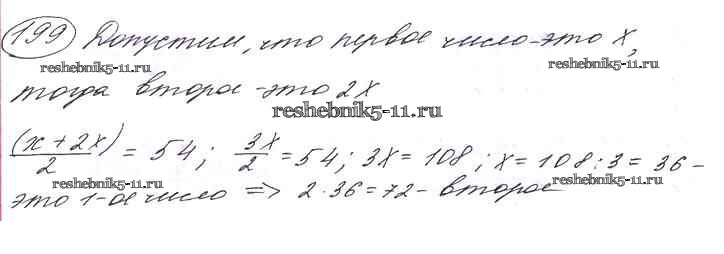 199 Допустим, что первое число-это x,
reshebnik5-11.ru. reshebnik5-11.ru.
тогда второе-это 2x
reshebnik5-11.ru.
(x+2x)/2 = 54; 3x/2 = 54; 3x = 108; x = 108:3 = 36 –
reshebnik5-11.ru. reshebnik5-11.ru.
это 1-ое число => 2·36=72- второе